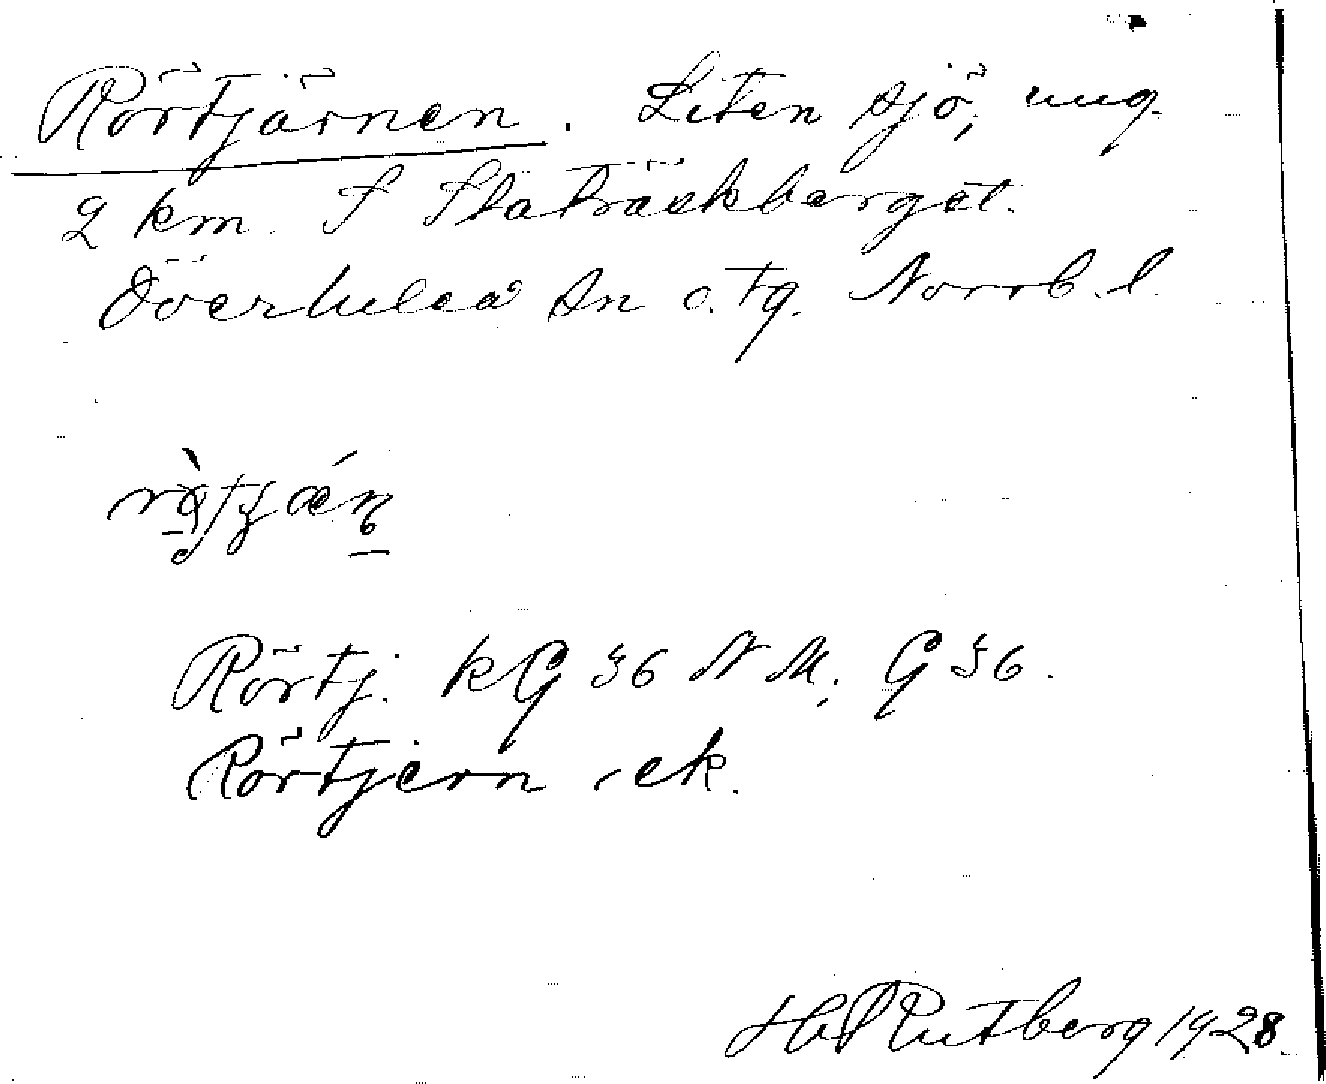 Rörtjärnen. Liten sjö, ung.
2 km. S Slåträskberget.
Överluleå sn o. tg. Norrb. l.
Rörtj. kG 36 N M; G 36.
Rörtjern, ek.
H. Rutberg 1928.